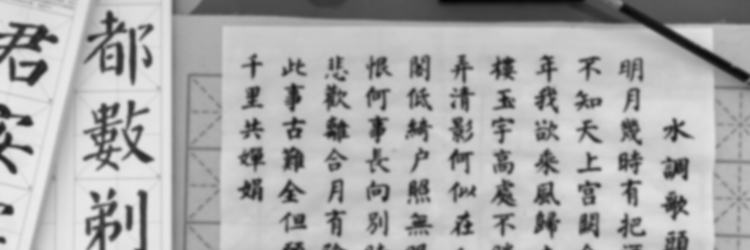 水調歌頭
明月幾時有把
不知天上宮闕
年我欲乘風歸
樓玉宇高處不
弄清影何似在
閣低綺户照無
恨何事長向別
悲歡離合月有
此事古難全但
千里共嬋娟
都數剃
君安